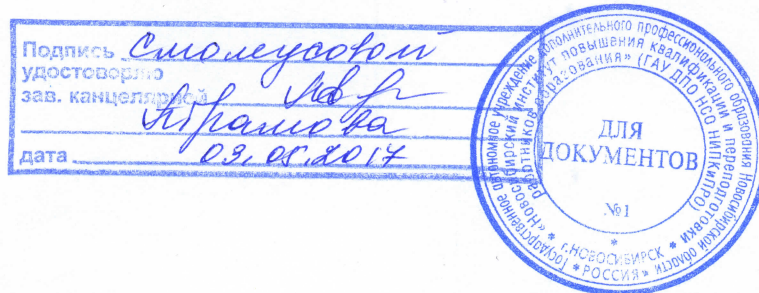 Подпись Смолеусовой
удостоворяю
зав. канцелярией
Абрамова
дата 03.05.2017
Государственное автономное учреждение дополнительного профессионального образования Новосибирской области
«Новосибирский институт повышения квалификации и переподготовки
работников образования» (ГАУ ДПО НСО НИПКиПРО)
ДЛЯ
ДОКУМЕНТОВ
№1
* г.НОВОСИБИРСК *
* РОССИЯ *